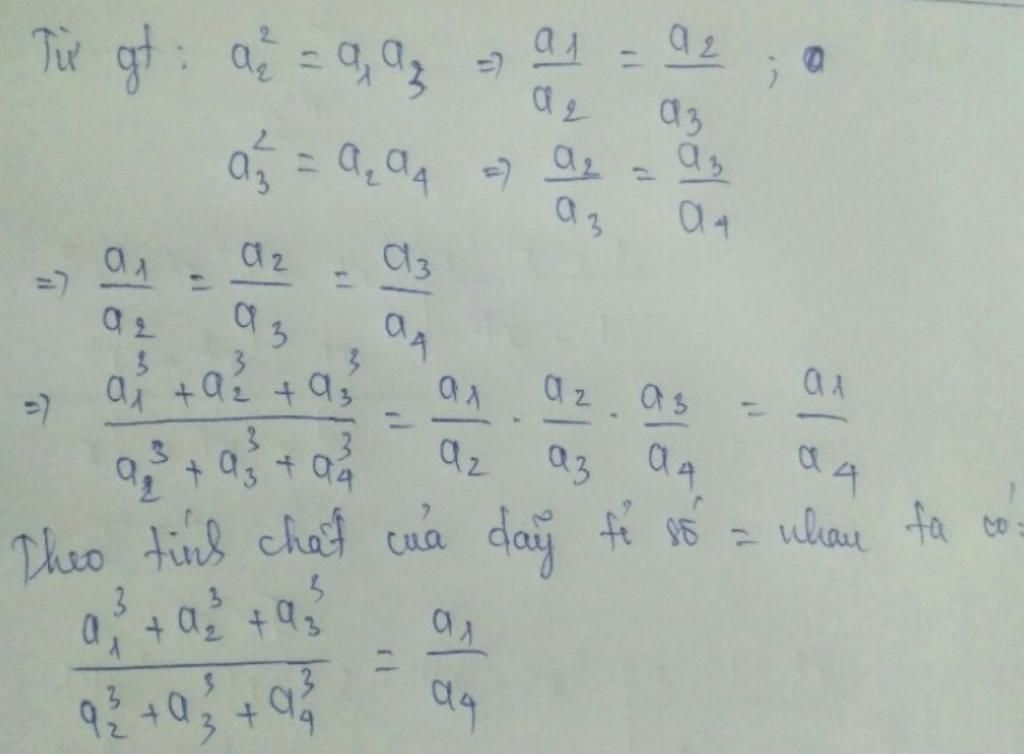 Từ gt: a₂² = a₁a₃ ⇒ a₁/a₂ = a₂/a₃ ;
a₃² = a₂a₄ ⇒ a₂/a₃ = a₃/a₄
⇒ a₁/a₂ = a₂/a₃ = a₃/a₄
⇒ (a₁³ + a₂³ + a₃³)/(a₂³ + a₃³ + a₄³) = a₁/a₂ . a₂/a₃ . a₃/a₄ = a₁/a₄
Theo tính chất của dãy tỉ số = nhau ta có:
(a₁³ + a₂³ + a₃³)/(a₂³ + a₃³ + a₄³) = a₁/a₄